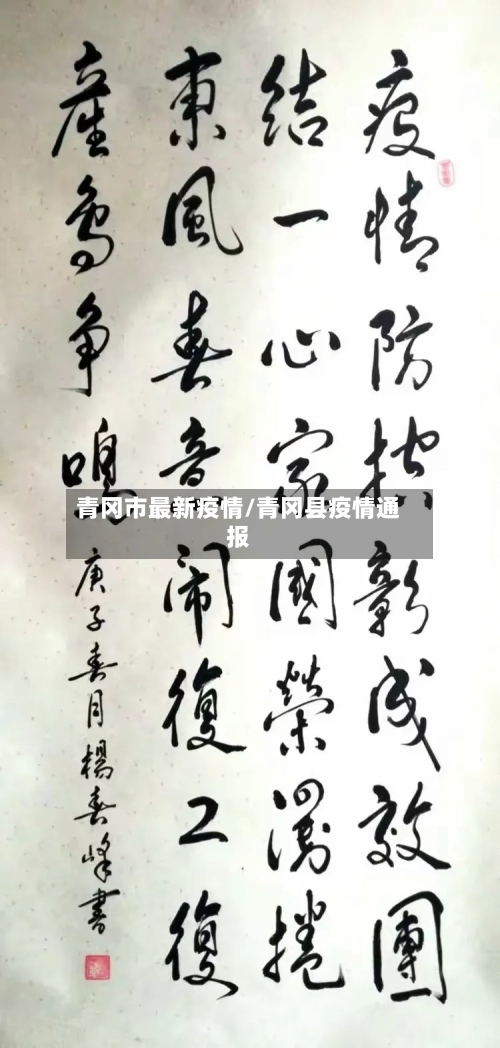 疫情防控彰成效團
結一心家國榮漫捲
東風春音闹復工復
產鸟争鳴
庚子春月楊春峰書
青冈市最新疫情/青冈县疫情通
报